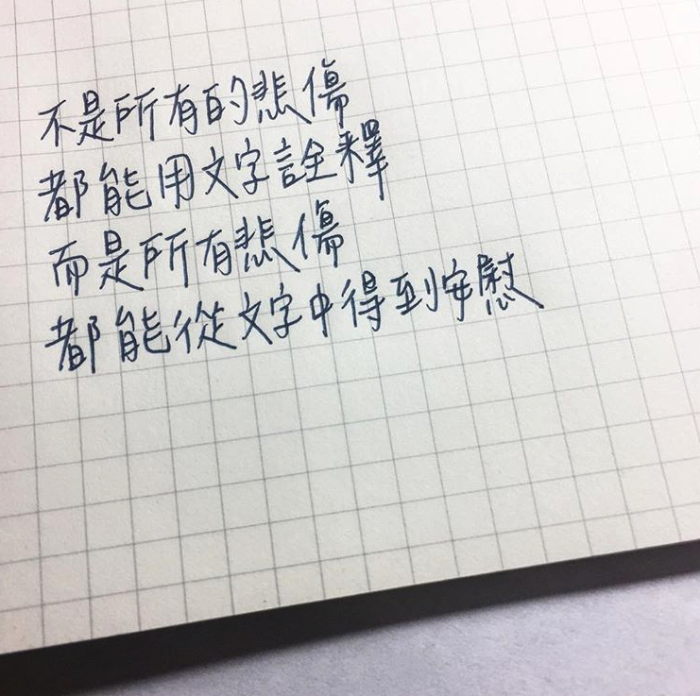 不是所有的悲傷
都能用文字詮釋
而是所有悲傷
都能從文字中得到安慰